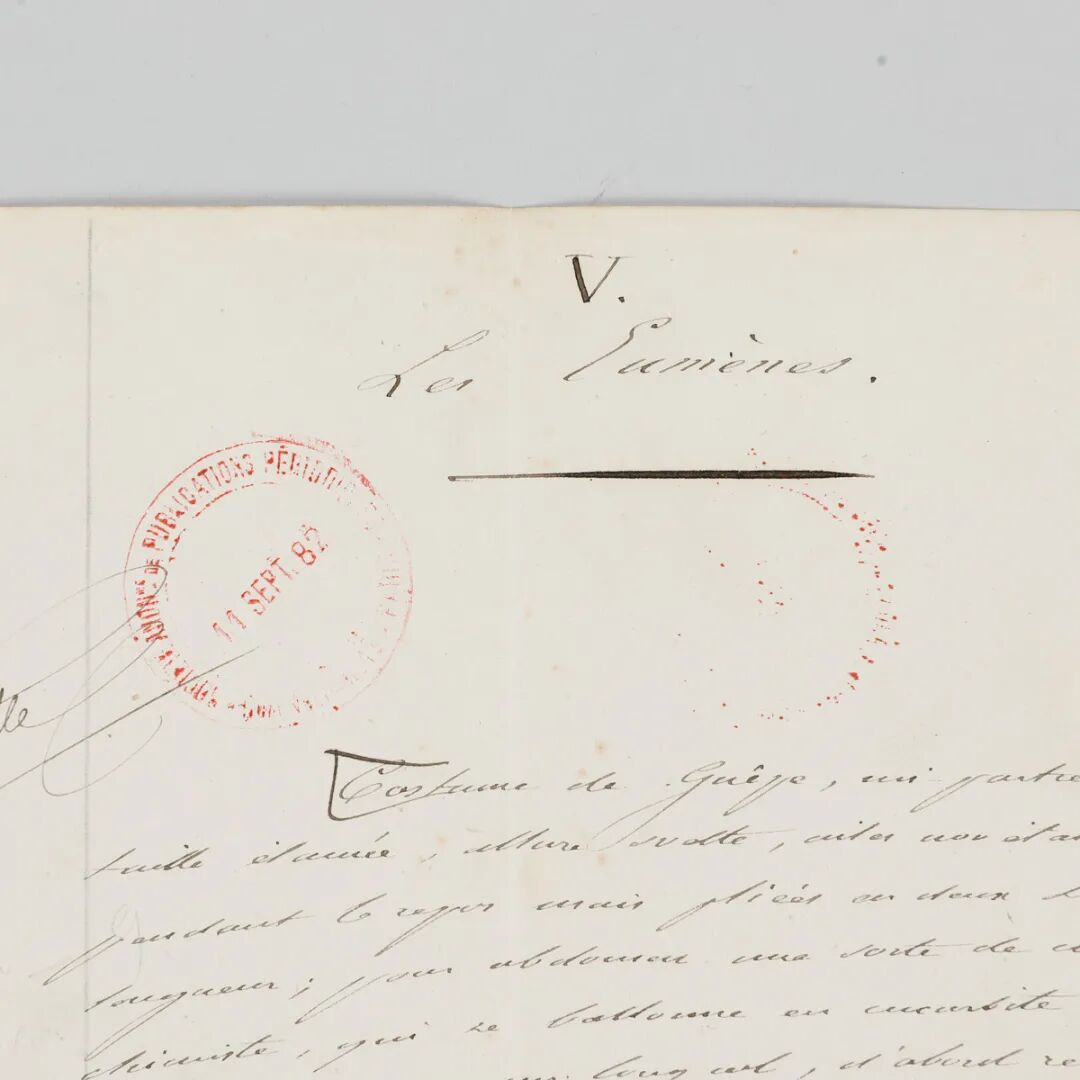 V.
Les Eumènes.
ANON^MES DE PUBLICATIONS PÉRIODI
11 SEPT. 82
lle
Costume de Guêpe, mi-partie
taille élancée, allure svelte, ailes non étal
pendant le repos mais pliées en deux
longueur ; pour abdomen une sorte de
chimiste, qui se ballonne en cucurbite
long col, d'abord re